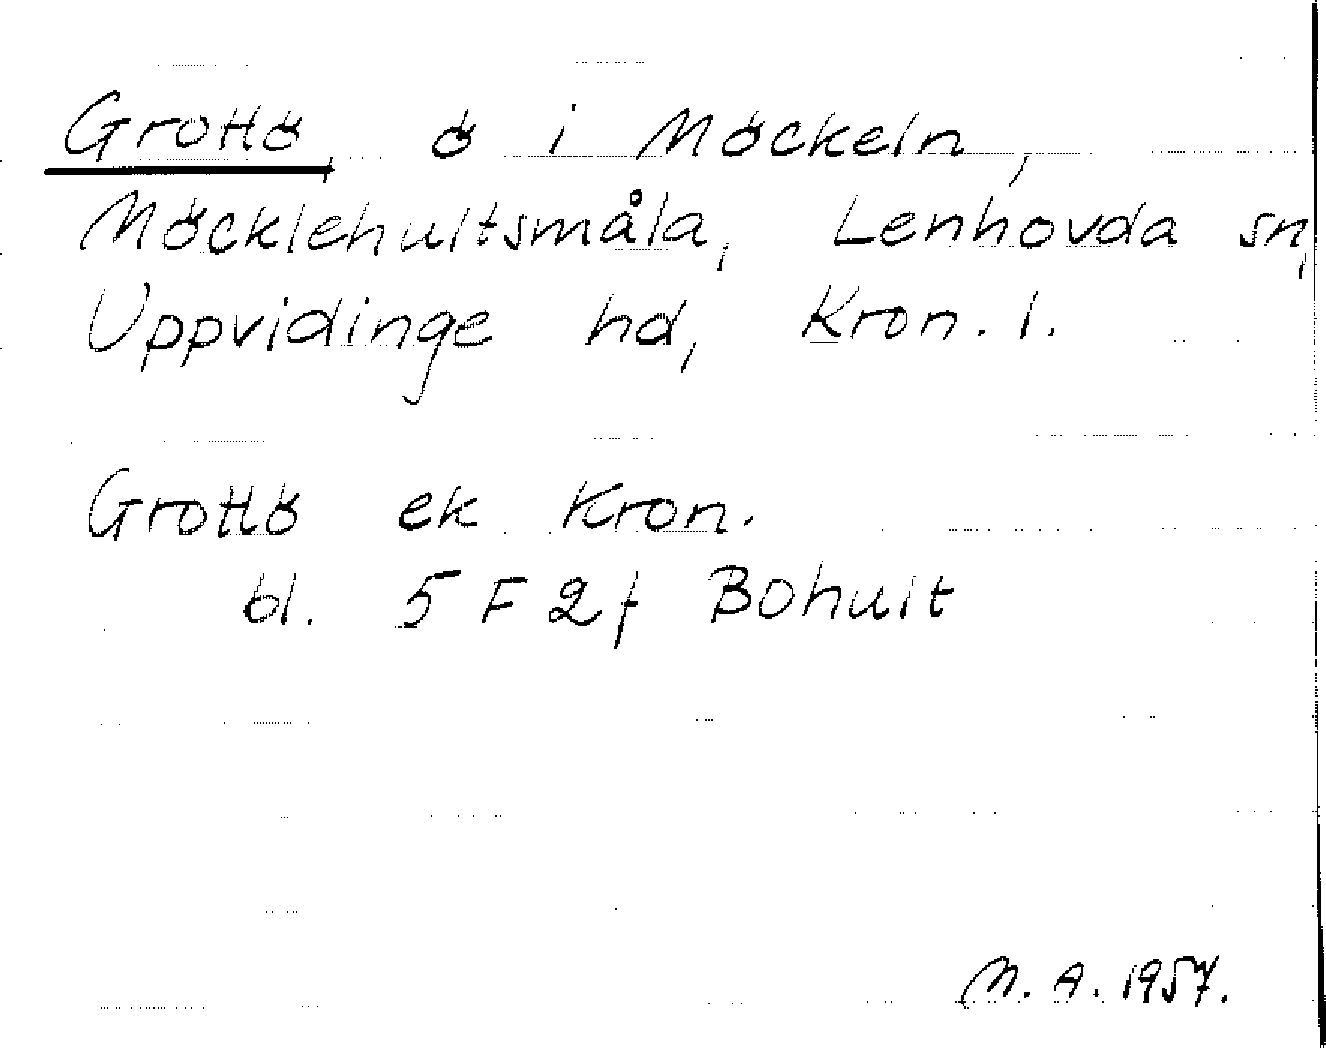 Grottö, ö i Möckeln,
Möcklehultsmåla, Lenhovda sn,
Uppvidinge hd, Kron. l.
Grottö ek Kron.
bl. 5 F 2 f Bohult
M. A. 1957.